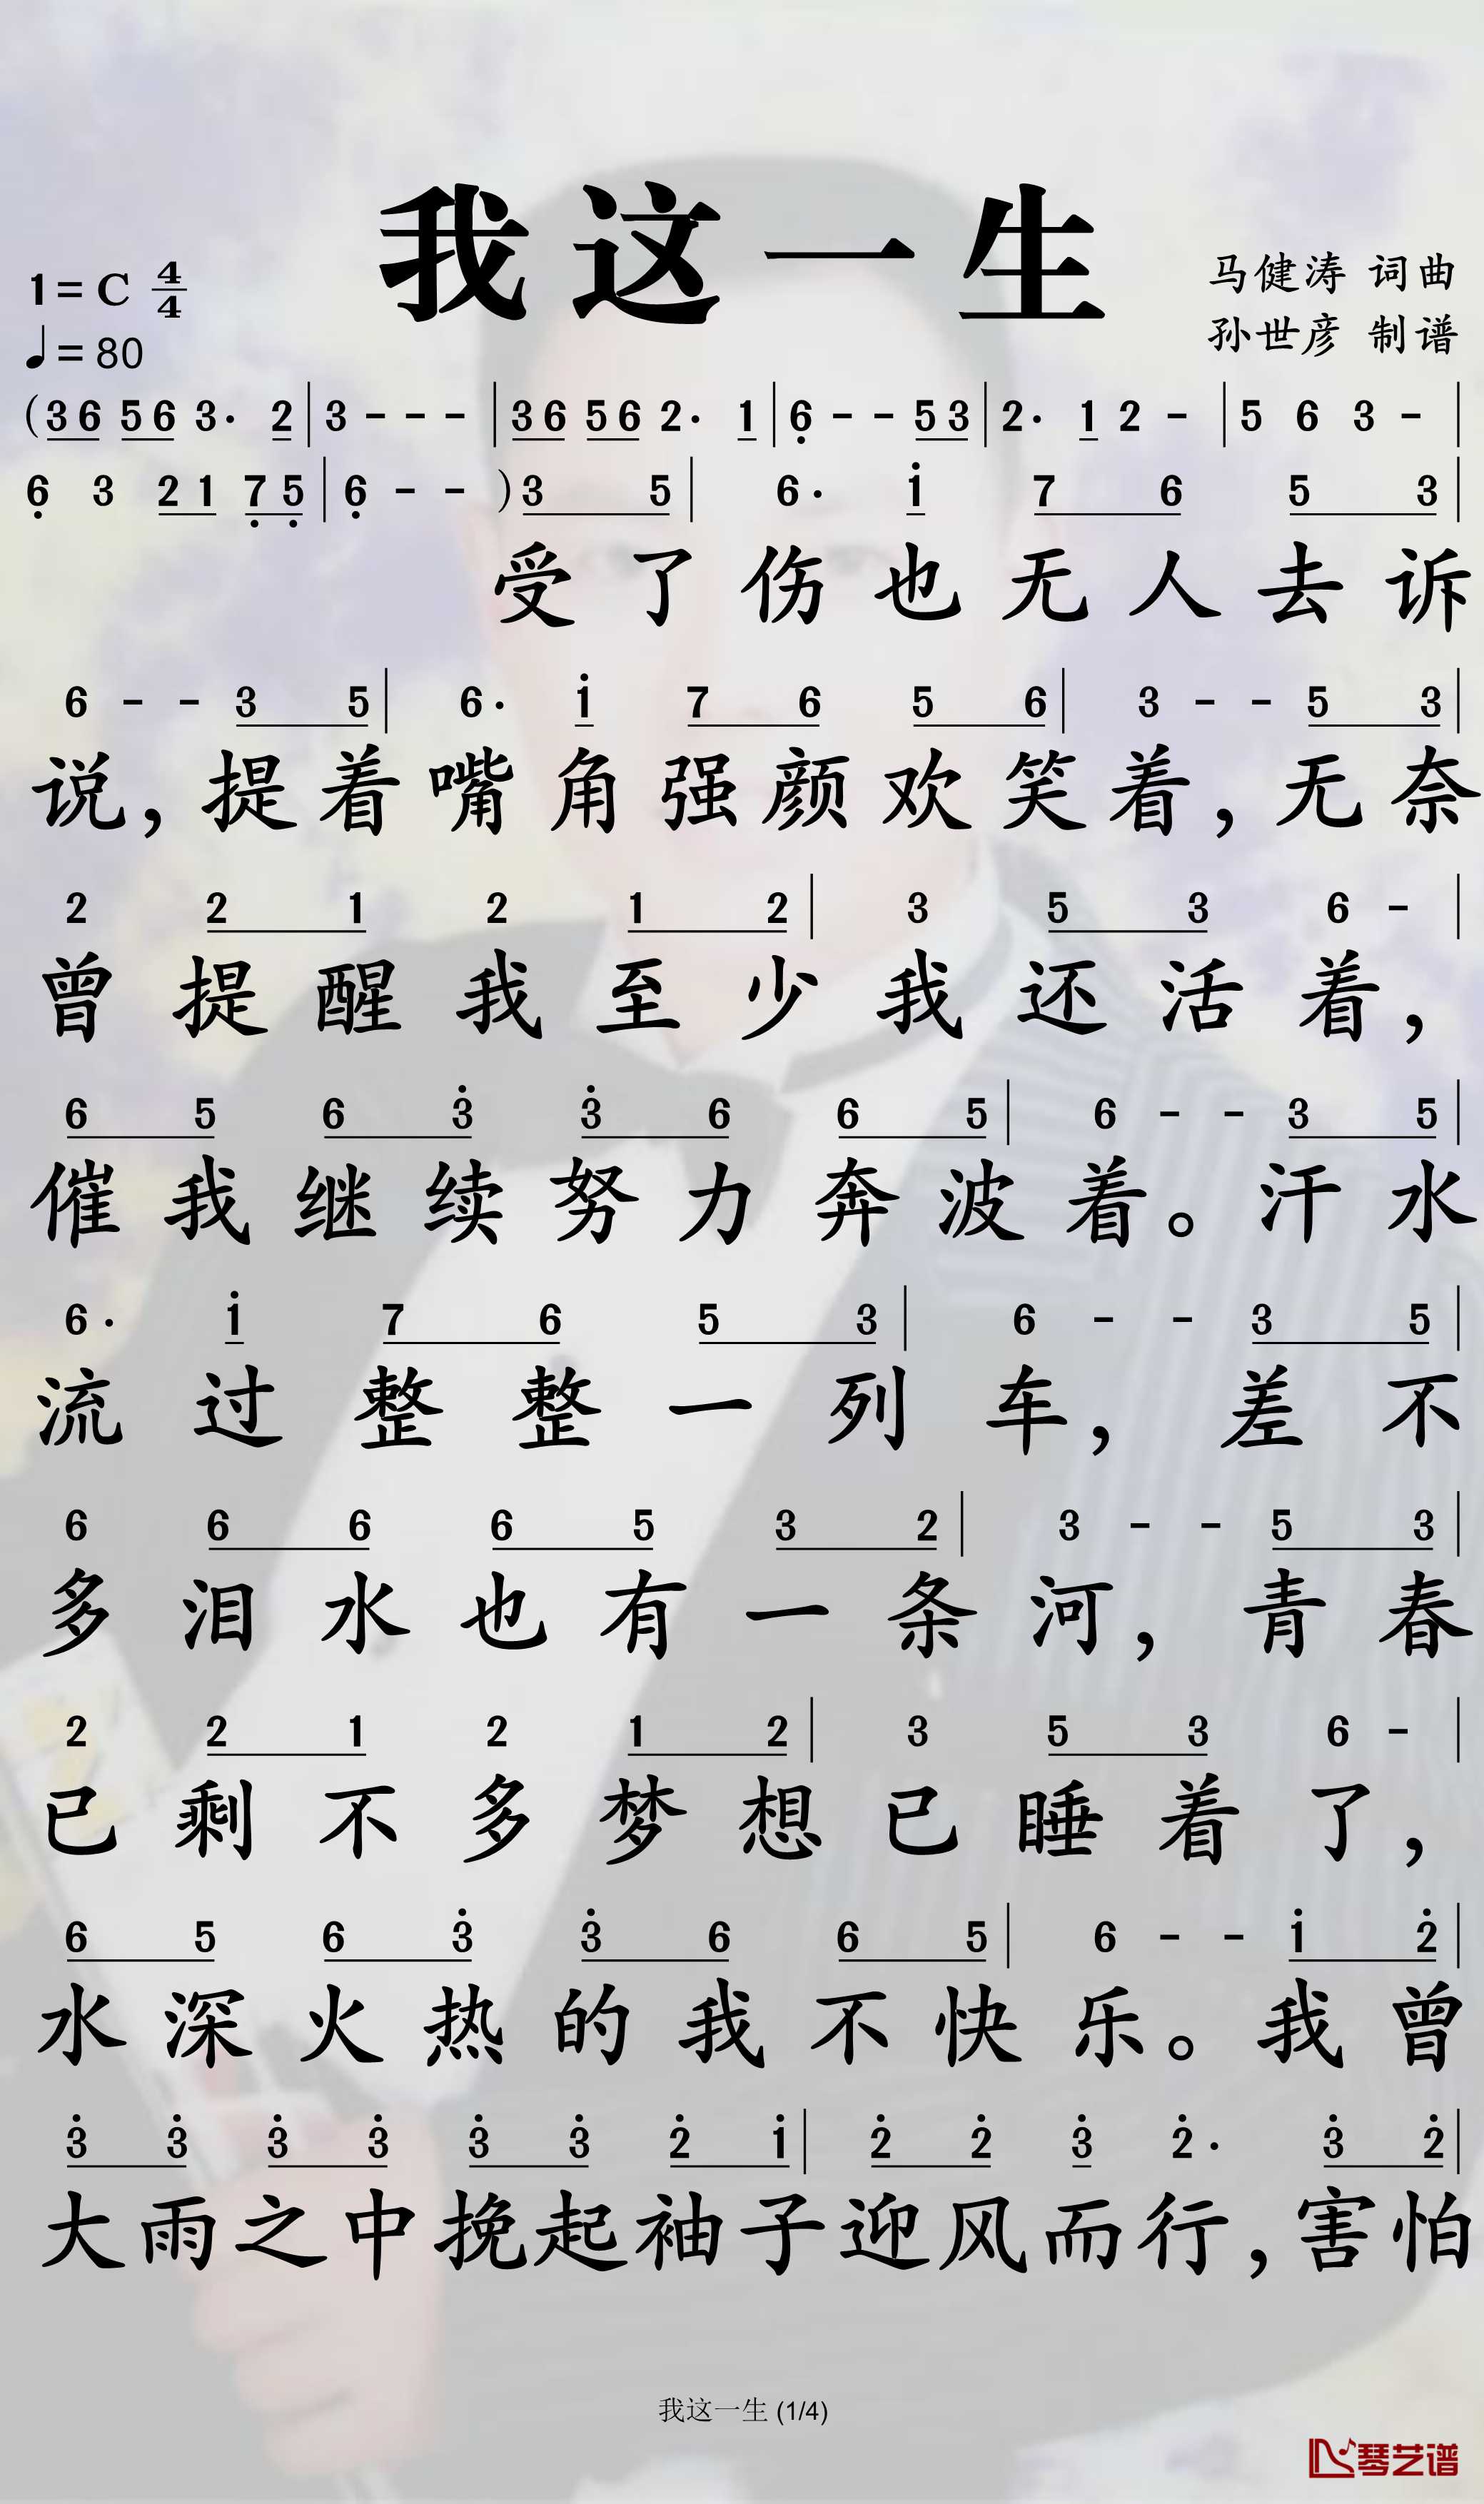 我这一生
1=C 4/4
马健涛 词曲
♩=80
孙世彦 制谱
(36 56 3· 2|3 - - -|36 56 2· 1|6̣ - - 53|2· 1 2 -|5 6 3 -|
6̣ 3 21 7̣5̣|6̣ - - )3 5|6· i̇ 7 6 5 3|
受了伤也无人去诉
6 - - 3 5|6· i̇ 7 6 5 6|3 - - 5 3|
说,提着嘴角强颜欢笑着,无奈
2 2 1 2 1 2|3 5 3 6 -|
曾提醒我至少我还活着,
6 5 6 3̇ 3̇ 6 6 5|6 - - 3 5|
催我继续努力奔波着。汗水
6· i̇ 7 6 5 3|6 - - 3 5|
流过整整一列车,差不
6 6 6 6 5 3 2|3 - - 5 3|
多泪水也有一条河,青春
2 2 1 2 1 2|3 5 3 6 -|
已剩不多梦想已睡着了,
6 5 6 3̇ 3̇ 6 6 5|6 - - i̇ 2̇|
水深火热的我不快乐。我曾
3̇ 3̇ 3̇ 3̇ 3̇ 3̇ 2̇ i̇|2̇ 2̇ 3̇ 2̇· 3̇ 2̇|
大雨之中挽起袖子迎风而行,害怕
我这一生 (1/4)
琴艺谱